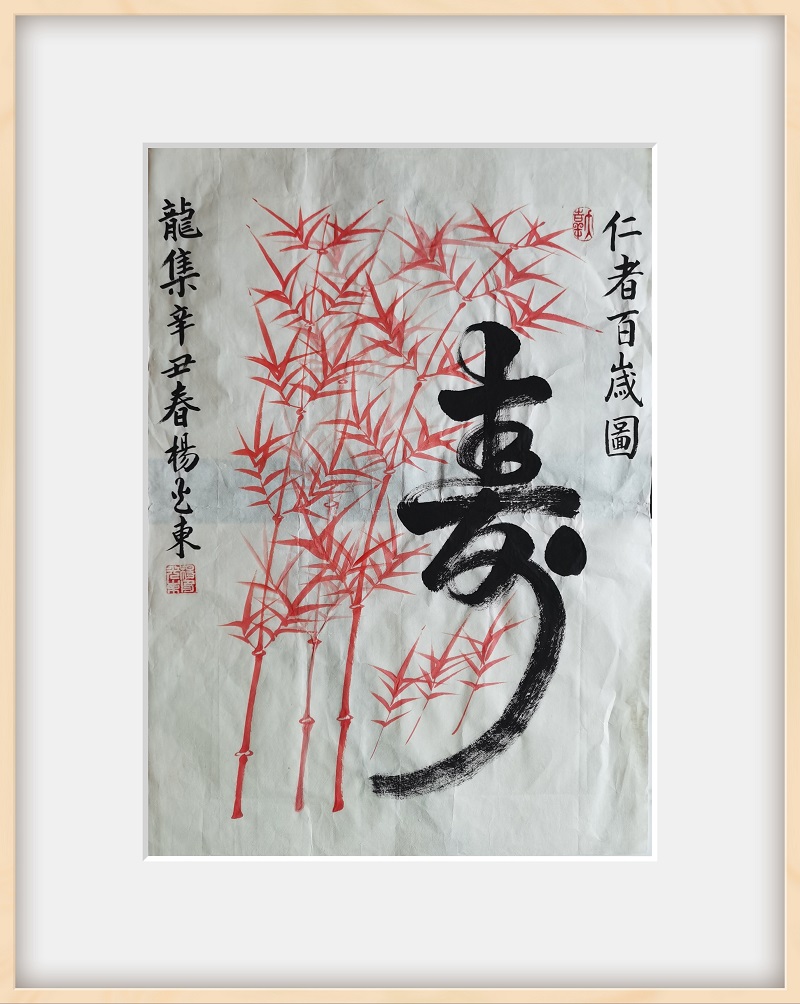 仁者百歲圖
寿
龍集辛丑春楊光東